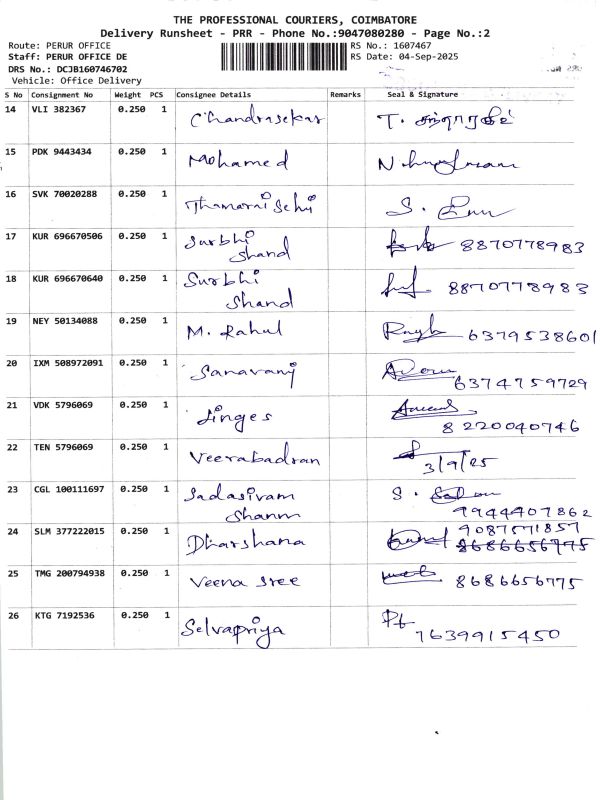 THE PROFESSIONAL COURIERS, COIMBATORE
Delivery Runsheet - PRR - Phone No.:9047080280 - Page No.:2
Route: PERUR OFFICE RS No.: 1607467
Staff: PERUR OFFICE DE RS Date: 04-Sep-2025
DRS No.: DCJB160746702
Vehicle: Office Delivery
S No Consignment No Weight PCS Consignee Details Remarks Seal & Signature
14 VLI 382367 0.250 1 Chandrasekar T.
15 PDK 9443434 0.250 1 Mohamed
16 SVK 70020288 0.250 1 Thamarai Selvi S.
17 KUR 696670506 0.250 1 Surbhi
Shand 8870778983
18 KUR 696670640 0.250 1 Surbhi
Shand 8870778983
19 NEY 50134088 0.250 1 M. Rahul 6379538601
20 IXM 508972091 0.250 1 Sanavanj
6374759729
21 VDK 5796069 0.250 1 Jinges
8220040746
22 TEN 5796069 0.250 1 Veerabadran
3/9/25
23 CGL 100111697 0.250 1 Sadasivam S.
Shanm 9944407862
24 SLM 377222015 0.250 1 Dharshana 9087571857
8686656775
25 TMG 200794938 0.250 1 Veena sree 8686656775
26 KTG 7192536 0.250 1 Selvapriya
7639915450